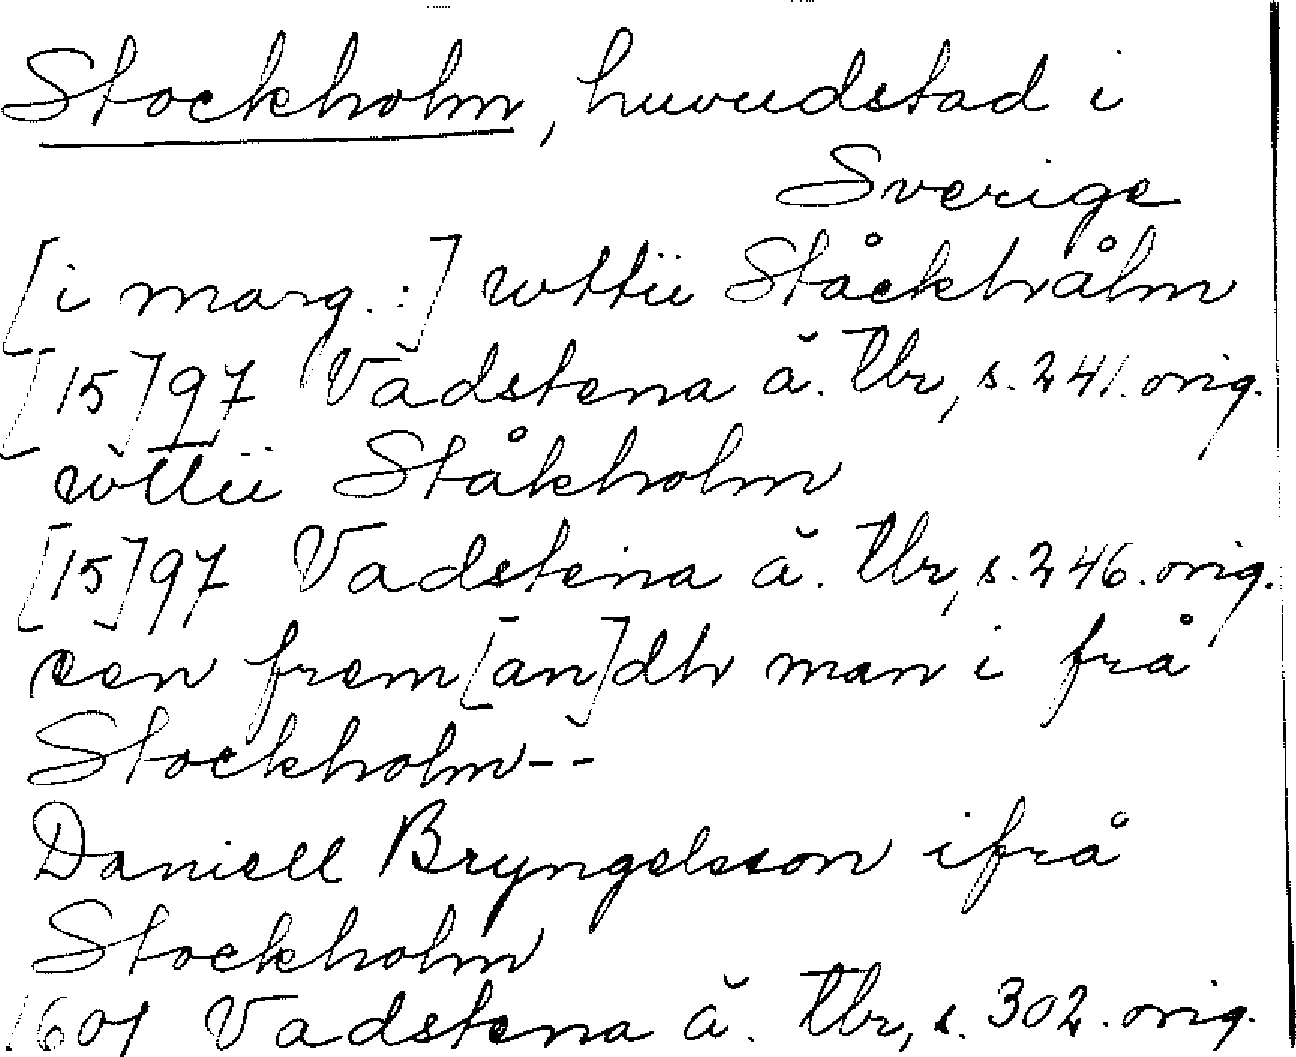 Stockholm, huvudstad i
Sverige
[i marg.:] wttü Ståckhålm
[15]97 Vadstena ä. tbr, s. 241. orig.
wttü Ståkholm
[15]97 Vadstena ä. tbr, s. 246. orig.
een frem[an]dh man i frå
Stockholm--
Daniell Bryngelsson ifrå
Stockholm
1601 Vadstena ä. tbr, s. 302. orig.